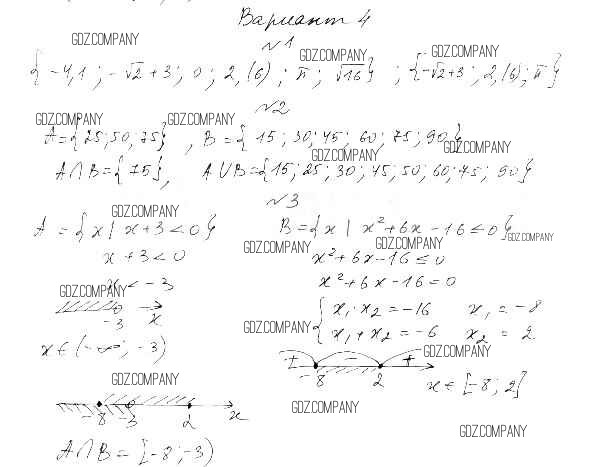 Вариант 4
GDZ.COMPANY
№1
GDZ.COMPANY
GDZ.COMPANY
{-4,1; -√2+3; 0; 2,(6); π; √16}; {-√2+3; 2,(6); π}
№2
GDZ.COMPANY GDZ.COMPANY
A={25;50;75}, B={15;30;45;60;75;90}
GDZ.COMPANY
GDZ.COMPANY
A∩B={75}, A∪B={15;25;30;45;50;60;75;90}
№3
GDZ.COMPANY
A={x| x+3<0} B={x| x²+6x-16≤0}
GDZ.COMPANY
GDZ.COMPANY GDZ.COMPANY
x+3<0 x²+6x-16≤0
x<-3 x²+6x-16=0
GDZ.COMPANY
-3 x
x₁·x₂=-16 x₁=-8
GDZ.COMPANY
x₁+x₂=-6 x₂=2
x∈(-∞;-3)
GDZ.COMPANY
+ - +
-8 2
x∈[-8;2]
GDZ.COMPANY
GDZ.COMPANY
-8 -3 2 x
A∩B=[-8;-3)
GDZ.COMPANY